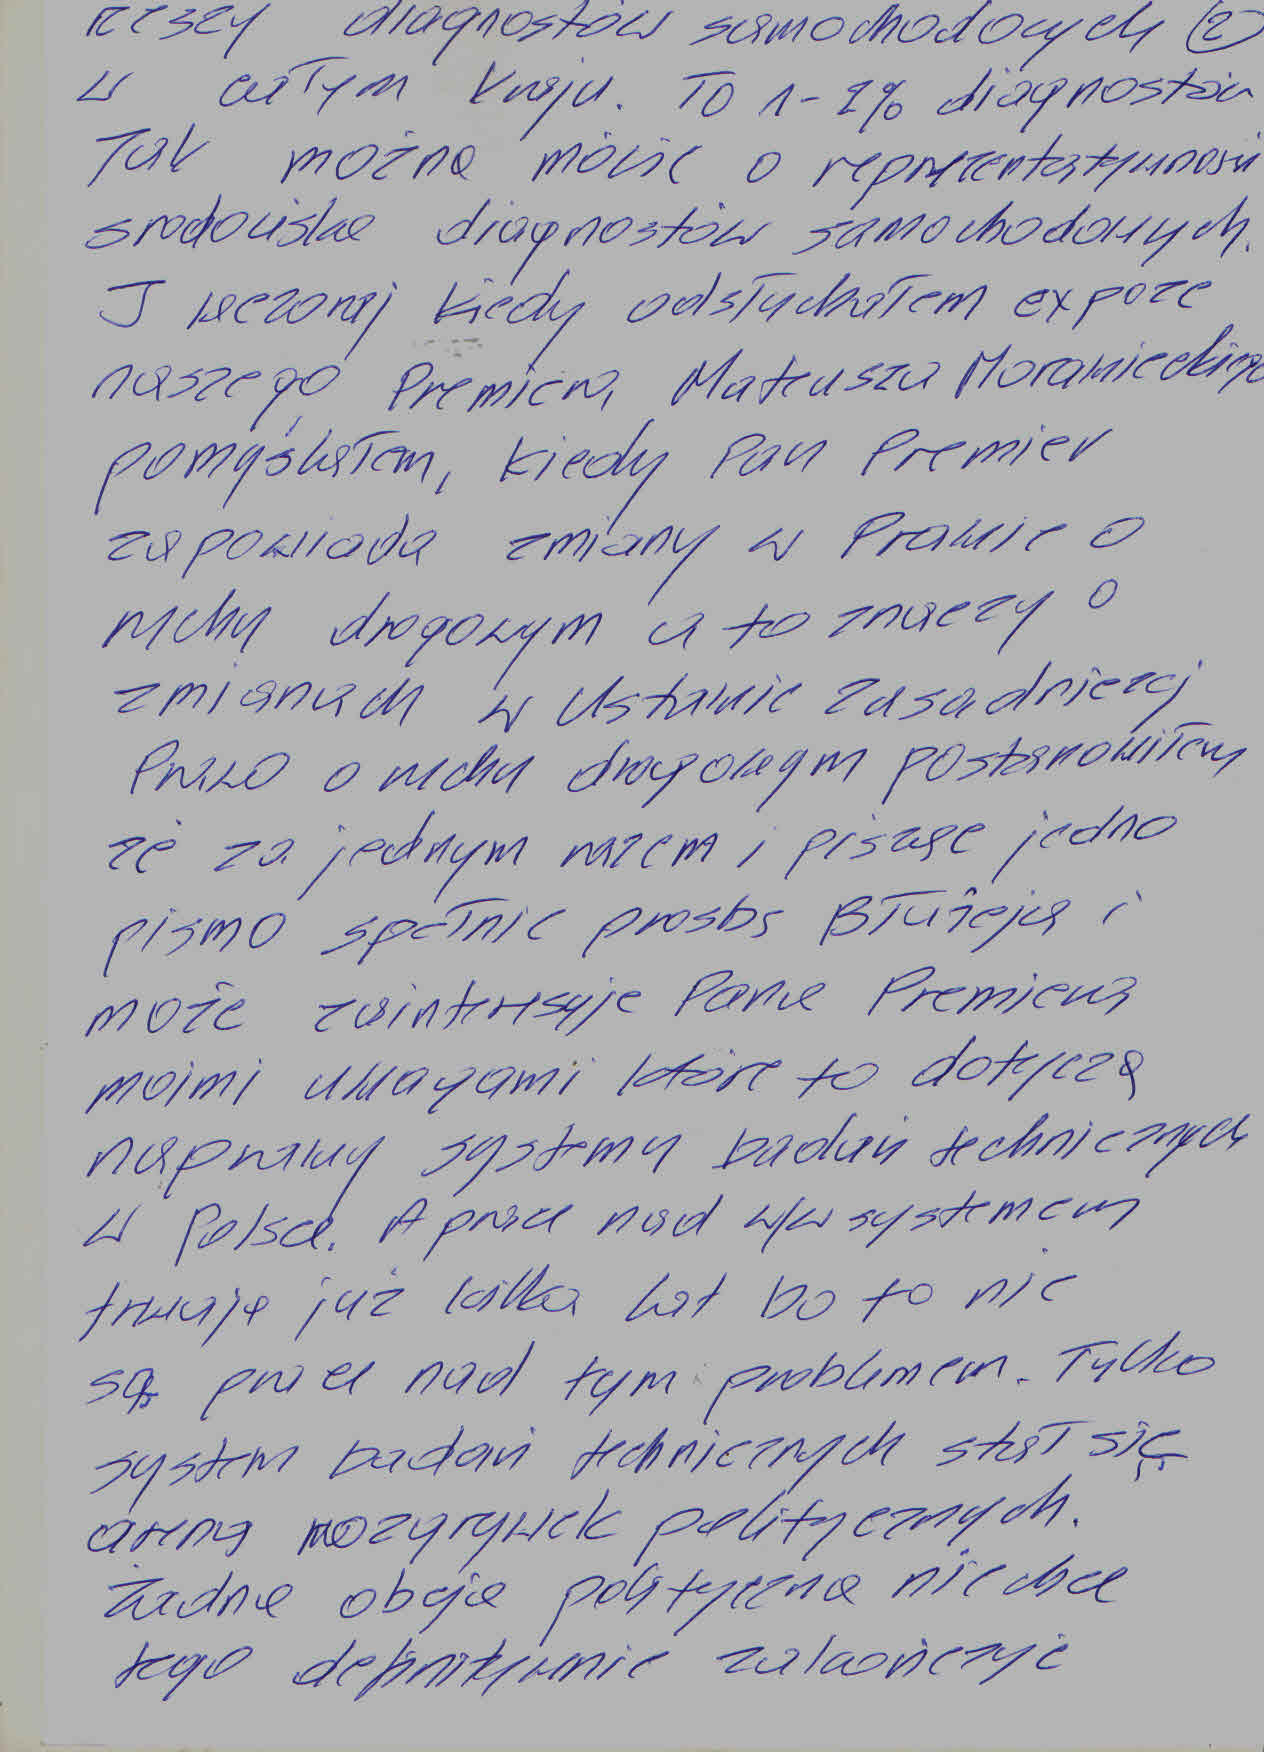 rzeszy diagnostów samochodowych (2)
w całym kraju. To 1-2% diagnostów
Tak można mówić o reprezentatywności
środowiska diagnostów samochodowych.
I wczoraj kiedy odsłuchałem expoze
naszego Premiera, Mateusza Morawieckiego
pomyślałem, kiedy Pan Premier
zapowiada zmiany w Prawie o
ruchu drogowym a to znaczy o
zmianach w Ustawie zasadniczej
Prawo o ruchu drogowym postanowiłem
że za jednym razem i pisząc jedno
pismo spełnić prośbę Błażeja i
może zainteresuje Pana Premiera
moimi uwagami które to dotyczą
naprawy systemu badań technicznych
w Polsce. A prace nad w/w systemem
trwają już kilka lat bo to nie
są prace nad tym problemem. Tylko
system badań technicznych stał się
areną rozgrywek politycznych.
Żadna obcja polityczna nie chce
tego definitywnie zakończyć